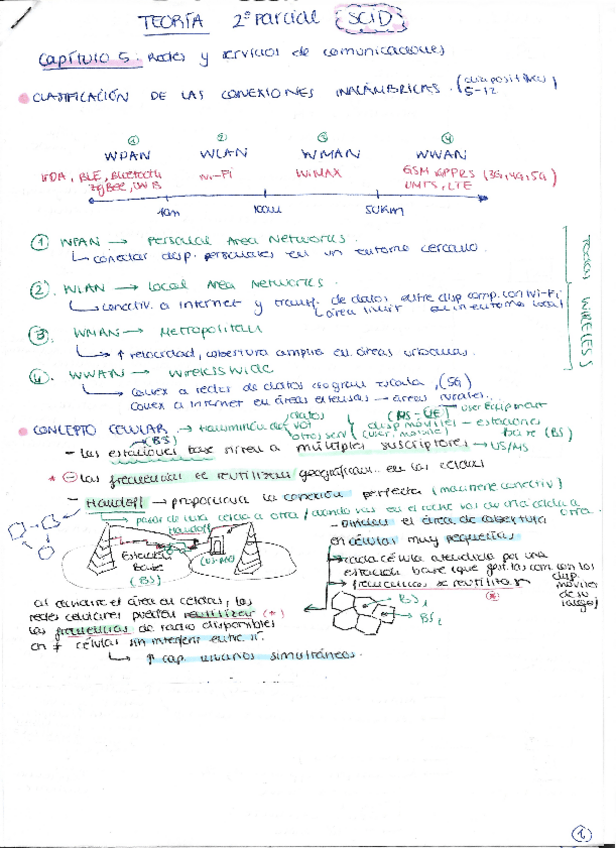 TEORÍA 2º Parcial (SCID)
Capítulo 5: Redes y servicios de comunicaciones
CLASIFICACIÓN DE LAS CONEXIONES INALÁMBRICAS. (diapositivas 5-12)
① ② ③ ④
WPAN WLAN WMAN WWAN
BLE, Bluetooth Wi-Fi WiMAX GSM GPPRS (3G, 4G, 5G)
ZigBee, UWB UMTS, LTE
10m 100m 50Km
① WPAN → Personal Area Networks.
↳ conectar disp. personales en un entorno cercano.
② WLAN → Local Area Networks.
↳ conectiv. a internet y transf. de datos entre disp comp. con Wi-Fi
↳ área limit en un entorno local
③ WMAN → Metropolitan
↳ ↑ velocidad, cobertura amplia en áreas urbanas.
④ WWAN → Wireless Wide
↳ conex a redes de datos en gran escala, (5G)
conex a internet en áreas extensas → áreas rurales...
TODAS WIRELESS
CONCEPTO CELULAR → transmisión de datos voz otros serv (MS - UE) User Equipment
disp móviles - estaciones base (BS)
(BS)
- Las estaciones base sirven a múltiples suscriptores → US/MS
* ⊖ las frecuencias se reutilizan geográficam... en las celdas
- Handoff → proporciona la conexión perfecta (mantiene conectiv)
pasar de una celda a otra / cuando vas en el coche vas de una celda a otra.
Handoff
Estación Base (BS)
- Dividen el área de cobertura
en células muy pequeñas
→ cada célula atendida por una
estación base (que gestiona com con los disp. móviles de su rango)
→ frecuencias se reutilizan
(*)
BS1
BS2
al dividirse el área en celdas, las
redes celulares pueden reutilizar (*)
las frecuencias de radio disponibles
en ≠ células sin interferir entre sí.
↳ ↑ cap. usuarios simultáneos.
①